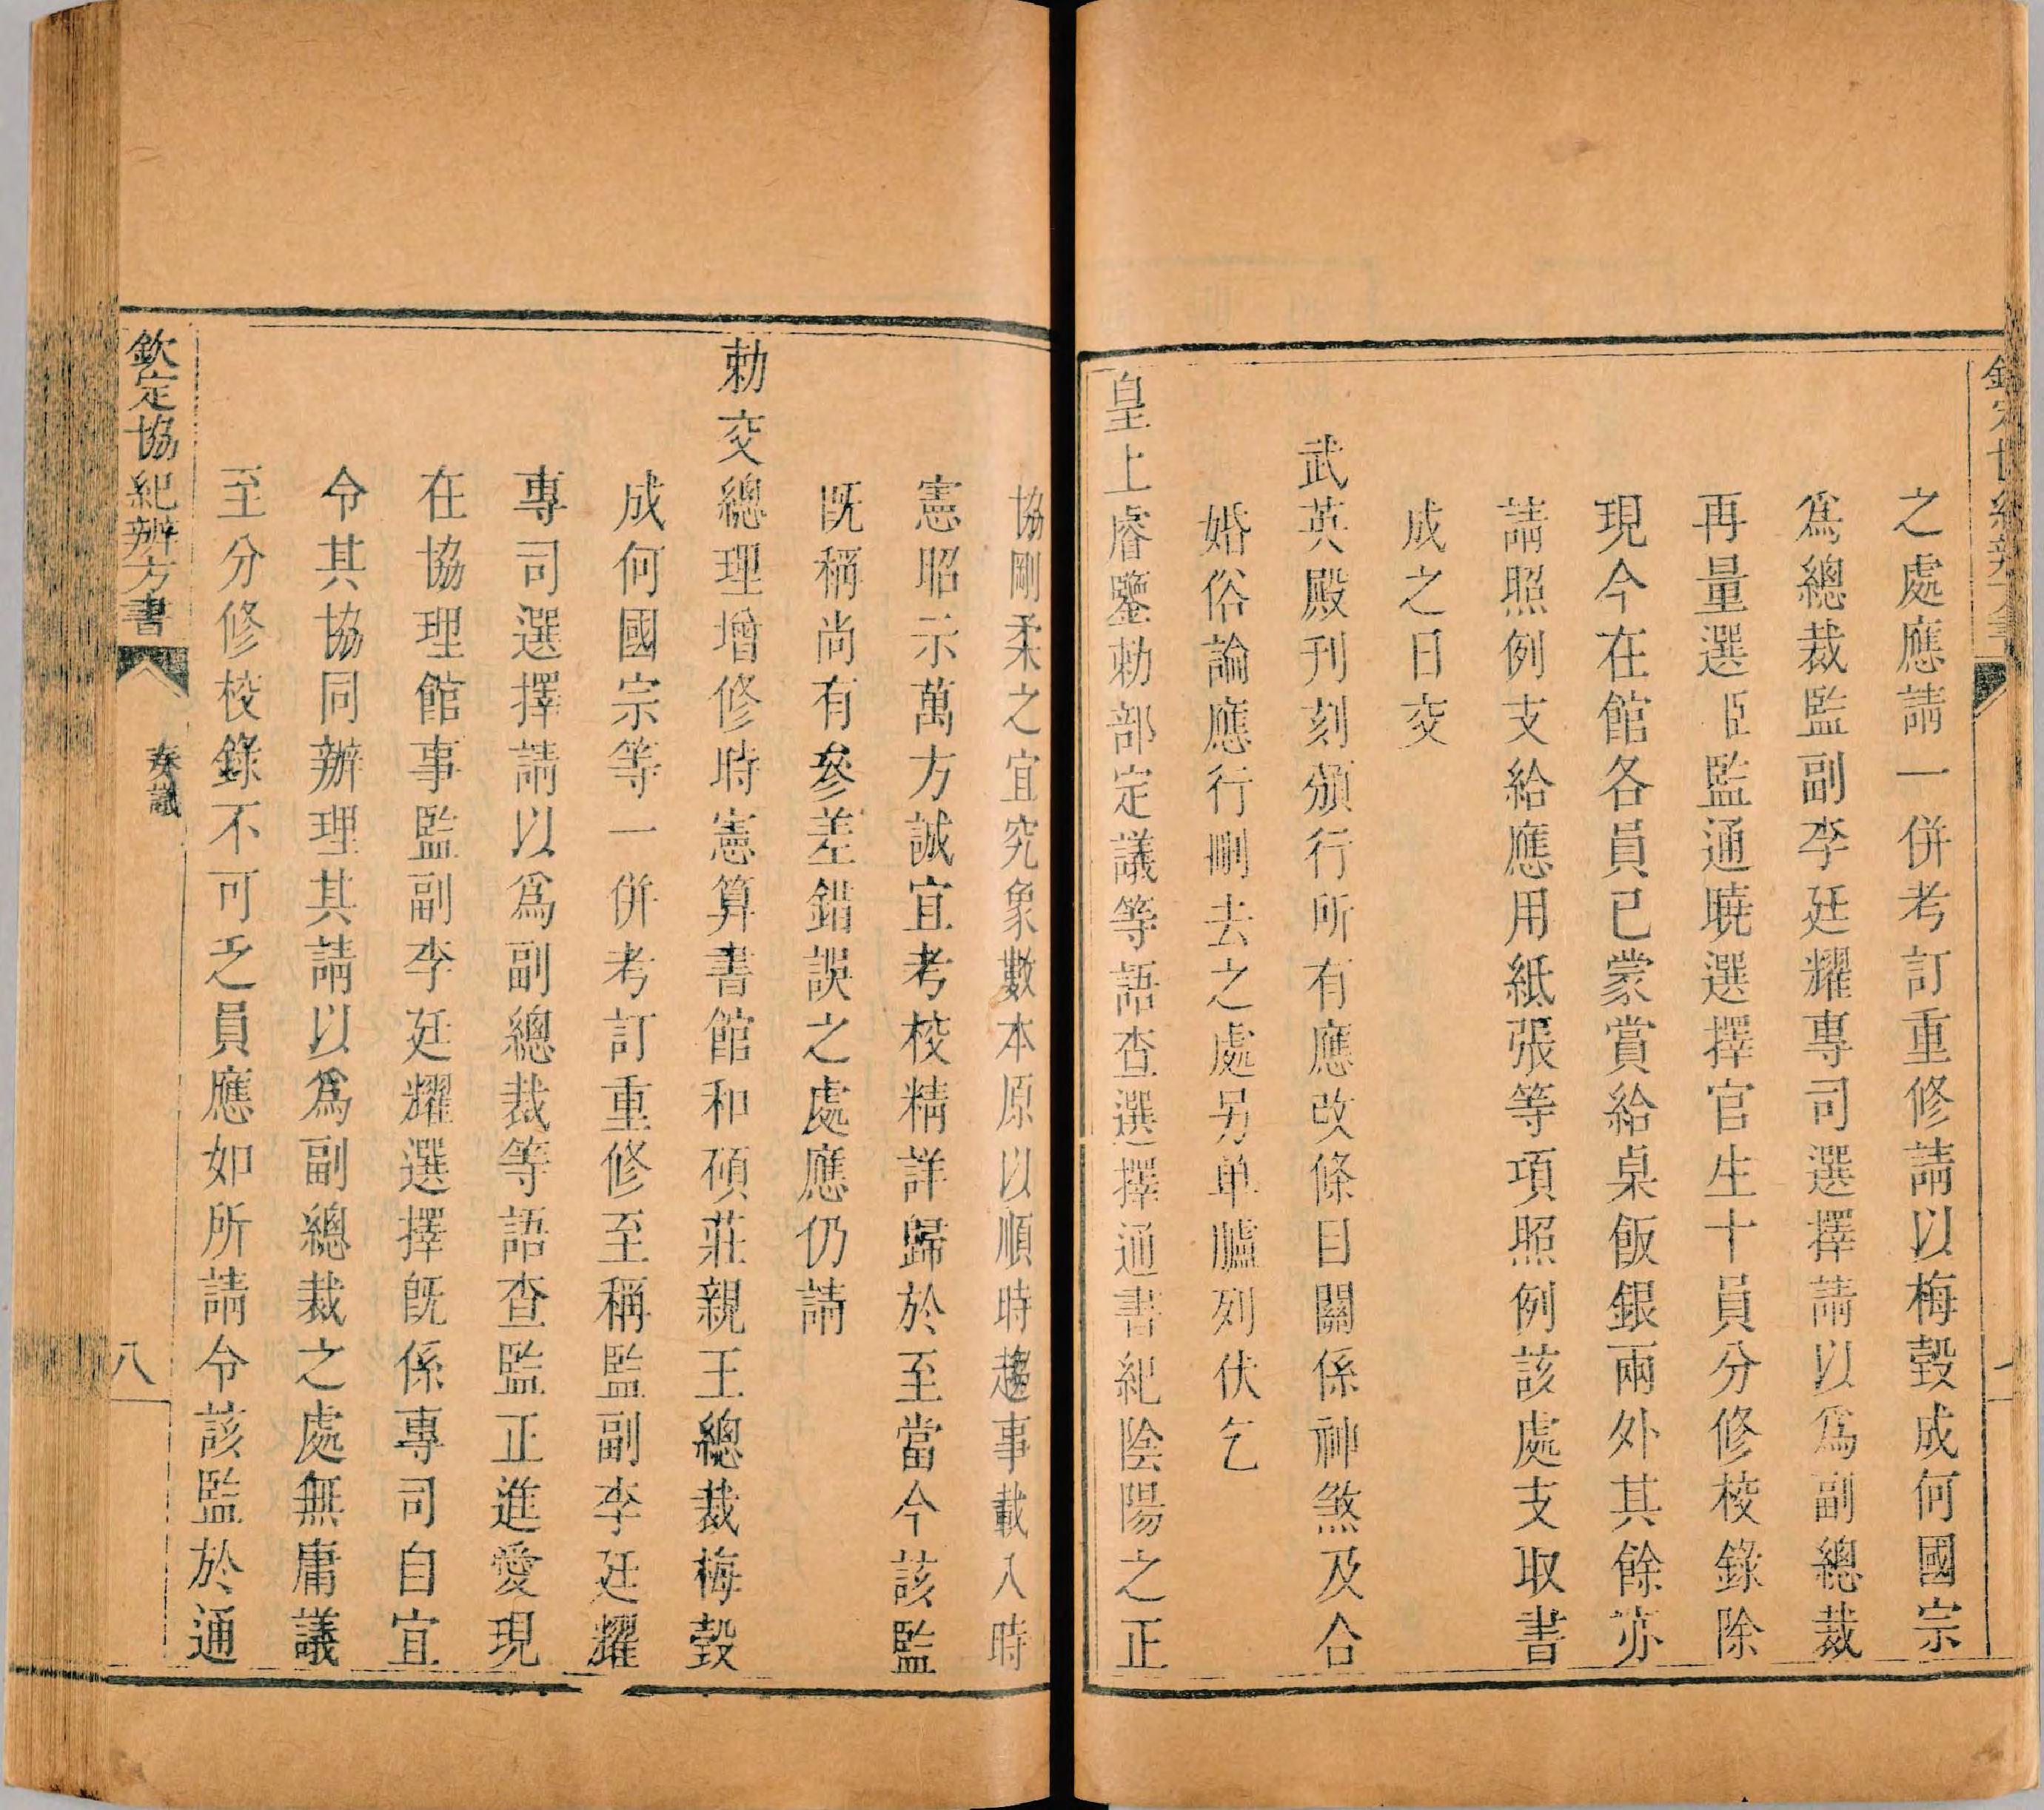 之處應請一併考訂重修請以梅瑴成何國宗
爲總裁監副李廷耀專司選擇請以爲副總裁
再量選臣監通曉選擇官生十員分修校錄除
現今在館各員已蒙賞給桌飯銀兩外其餘亦
請照例支給應用紙張等項照例該處支取書
成之日交
武英殿刊刻頒行所有應改條目關係神煞及合
婚俗論應行刪去之處另单臚列伏乞
皇上睿鑒勅部定議等語查選擇通書紀陰陽之正
協剛柔之宜究象數本原以順時趨事載入時
憲昭示萬方誠宜考校精詳歸於至當今該監
旣稱尚有參差錯誤之處應仍請
勅交總理增修時憲算書館和碩莊親王總裁梅瑴
成何國宗等一併考訂重修至稱監副李廷耀
專司選擇請以爲副總裁等語查監正進愛現
在協理館事監副李廷耀選擇旣係專司自宜
令其協同辦理其請以爲副總裁之處無庸議
至分修校錄不可乏員應如所請令該監於通
欽定協紀辨方書
奏議
八